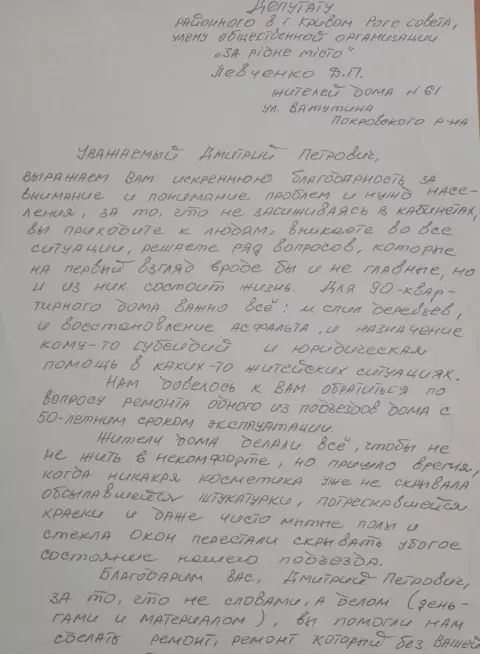 Депутату
районного в г. Кривом Роге совета,
члену общественной организации
"За рідне місто"
Левченко Д.П.
жителей дома №61
ул. Ватутина
Покровского р-на
Уважаемый Дмитрий Петрович,
выражаем Вам искреннюю благодарность за
внимание и понимание проблем и нужд насе-
ления, за то, что не засиживаясь в кабинетах,
вы приходите к людям, вникаете во все
ситуации, решаете ряд вопросов, которые
на первый взгляд вроде бы и не главные, но
и из них состоит жизнь. Для 90-квар-
тирного дома важно всё: и спил деревьев,
и восстановление асфальта, и назначение
кому-то субсидий и юридическая
помощь в каких-то житейских ситуациях.
Нам довелось к Вам обратиться по
вопросу ремонта одного из подъездов дома с
50-летним сроком эксплуатации.
Жители дома делали всё, чтобы не
не жить в некомфорте, но пришло время,
когда никакая косметика уже не скрывала
обсыпавшейся штукатурки, потрескавшейся
краски и даже чисто мытые полы и
стекла окон перестали скрывать убогое
состояние нашего подъезда.
Благодарим Вас, Дмитрий Петрович,
за то, что не словами, а делом (день-
гами и материалом), вы помогли нам
сделать ремонт, ремонт который без Вашей